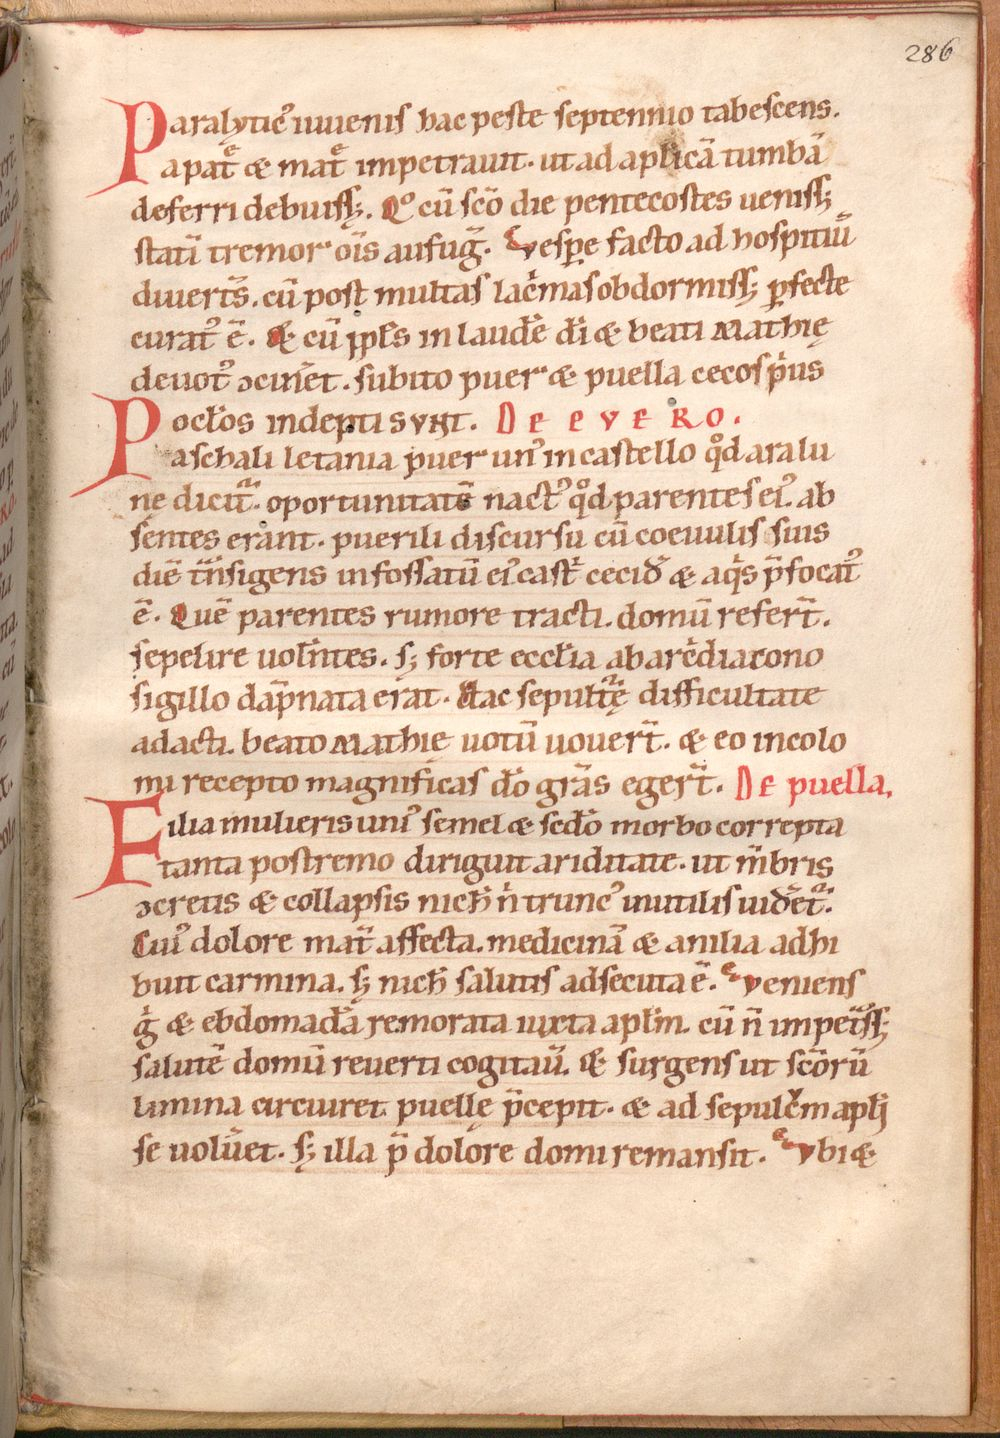 286
Paralytic᾽ iuuenis hac peste septennio tabescens.
a patͤ & matͤ impetrauit. ut ad aplicā tumbā
deferri debuiss;. Qͦ cū scō die pentecostes ueniss;
statī tremor oīs aufug̅. Vesp̲e facto ad hospitiū
diuert̄s. cū post multas lac̍mas obdormiss; p̲fecte
curat᾽ ē. & cū pp̲ls in laudē dī & beati Mathię
deuot᾽ ɔcin̄et. subito puer & puella cecos p̍us
oclos indepti sunt. DE PVERO.
Paschali letania puer un᾽ in castello qͦd aralu
ne dicit᷑. oportunitatē nact᾽ qͦd parentes ei᾽ ab
sentes erant. puerili discursu cū coeuulis suis
diē t̄nsigens in fossatū ei᾽ cast̍ cecid̄ & aq̍s p̄focat᾽
ē. Quē parentes rumore tracti. domū refert̄.
sepelire uol̄ntes. s; forte eccl̄ia ab arc̍diacono
sigillo dāpnata erat. Hac sepult᷑ę difficultate
adacti. beato Mathię uotū uouert̄. & eo incolo
mi recepto magnificas dō grās egert̄. De puella.
Filia mulieris uni᾽ semel & scdō morbo correpta
tanta postremo diriguit ariditate. ut m̄bris
ɔcretis & collapsis nich̄ n̍ trunc᾽ inutilis uidēt᷑.
Cui᾽ dolore mat̄ affecta. medicinā & anilia adhi
buit carmina. s; nich̄ salutis adsecuta ē. Veniens
g̍ & ebdomadā remorata iuxta apl̄m. cū n̄ impet᷑ss;
salutē domū reuerti cogitaū. & surgens ut scōrū
limina circuiret. puellę p̄cepit. & ad sepulc̍m apl̄i
se uolūet. s; illa p̄ dolore domi remansit. Vbi &